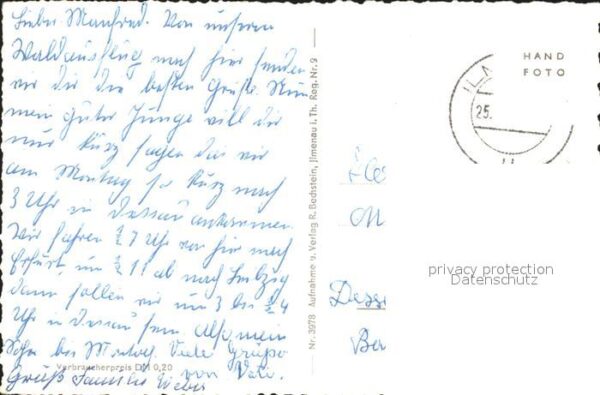 Lieber Manfred. Von unserem
Waldausflug nach hier senden
wir dir die besten Grüße. Nun
mein guter Junge will dir
nur kurz sagen das wir
am Montag so kurz nach
3 Uhr in Dessau ankommen.
Wir fahren ½ 7 Uhr von hier nach
Erfurt, um ½ 11 ab nach Leipzig
dann sollen wir um 3 bis ½ 4
Uhr in Dessau sein. Also mein
Sohn bis Montag. Viele Grüße
von Vati.
Gruß Familie Weber
Verbraucherpreis DM 0,20
Nr. 3978 Aufnahme u. Verlag R. Bechstein, Jlmenau i. Th. Reg. Nr. 9
HAND
FOTO
ILM
25.
privacy protection
Datenschutz
Dess